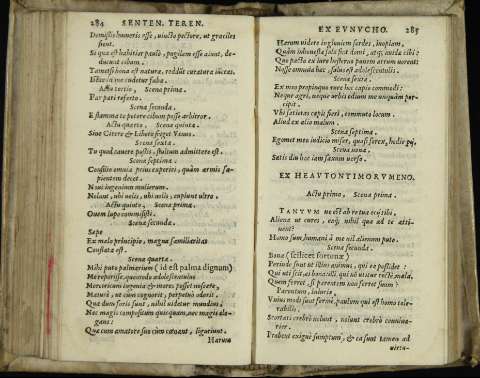 284 SENTEN. TEREN.
Demissis humeris esse, uincto pectore, ut graciles
sient.
Si qua est habitior paulò, pugilem esse aiunt, de-
ducunt cibum.
Tametsi bona est natura, reddũt curatura iũceas.
in me cudetur faba.
Actu tertio, Scena prima.
Par pari referto.
Scena secunda.
E flamma te petere cibum posse arbitror.
Actu quarto, Scena quinta.
Sine Cerere & Libero friget Venus.
Scena sexta.
Tu quod cauere possis, stultum admittere est.
Scena septima.
Consilio omnia prius experiri, quàm armis sa-
pientem decet.
Noui ingenium mulierum.
Nolunt, ubi uelis, ubi nolis, cupiunt ultro.
Actu quinto, Scena prima.
Quem lupo commisisti.
Scena secunda.
Sæpe
Ex malo principio, magna familiaritas
Conflata est.
Scena quarta.
Mihi puto palmarium (id est palma dignum)
Me reperisse, quomodo adolescentulus
Meretricum ingenia & mores posset noscere,
Maturè, ut cum cognorit, perpetuò oderit.
Quæ dum foris sunt, nihil uidetur mundius,
Nec magis compositum quicquam, nec magis ele-
gans:
Quæ cum amatore suo cùm cœnant, liguriunt.
Harum
EX EVNVCHO. 285
Harum uidere ingluuiem sordes, inopiam,
Quàm inhonestæ solæ sint domi, atq; auidæ cibi:
Quo pacto ex iure hesterno panem atrum uorent:
Nosse omnia hæc, salus est adolescentulis.
Scena sexta.
Ex meo propinquo rure hoc capio commodi:
Neque agri, neque urbis odium me unquàm per-
cipit.
Vbi satietas cœpit fieri, commuto locum.
Aliud ex alio malum.
Scena septima.
Egomet meo indicio miser, quasi sorex, hodie perij.
Scena nona.
Satis diu hoc iam saxum uerso.
EX HEAVTONTIMORVMENO.
Actu primo, Scena prima.
TANTVM ne est ab re tua ocij tibi,
Aliena ut cures, eaq; nihil quæ ad te atti-
nent?
Homo sum, humani à me nil alienum puto.
Scena secunda.
Bona (scilicet fortunæ)
Perinde sunt ut illius animus, qui ea possidet:
Qui uti scit, ei bona: illi, qui nõ utitur rectè, mala.
Quem ferret, si parentem non ferret suum?
Parentum iniuriæ
Vnius modi sunt fermè, paulum qui est homo tole-
rabilis.
Scortari crebrò nolunt, nolunt crebrò conuiua-
rier.
Præbent exiguè sumptum, & ea sunt tamen ad
uirtu-